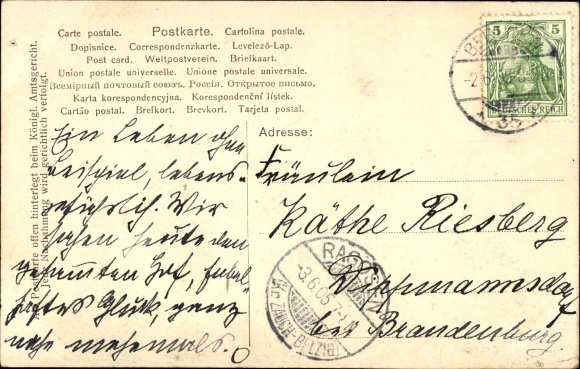 Carte postale. Postkarte. Cartolina postale.
Dopisnice. Correspondenzkarte. Levelező-Lap.
Post card. Weltpostverein. Briefkaart.
Union postale universelle. Unione postale universale.
Всемірный почтовый союзъ. Россія. Открытое письмо.
Karta korespondencyjna. Korespondenční lístek.
Cartão postal. Brefkort. Brevkort. Tarjeta postal.
Postkarte offen hinterlegt beim Königl. Amtsgericht.
Jede Nachahmung wird gerichtlich verfolgt.
Ein Leben ohne
Beispiel, lebens-
gefährlich. Wir
haben heute den
gesamten Hof, fabel-
haftes Glück, ganz
wie niemals.
Adresse:
Fräulein
Käthe Riesberg
bei Brandenburg.
5 5
DEUTSCHES REICH
35
RAG
-3.6.05.7-
BELZIG